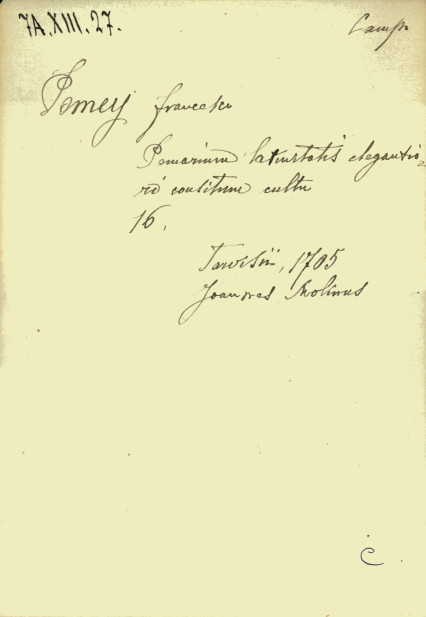 7A.XIII.27.
Camp
Pomey Francesco
Pomarium latinitatis elegantio=
ri consitum cultu
16.
Tarvisii, 1705
Joannes Molinus
C